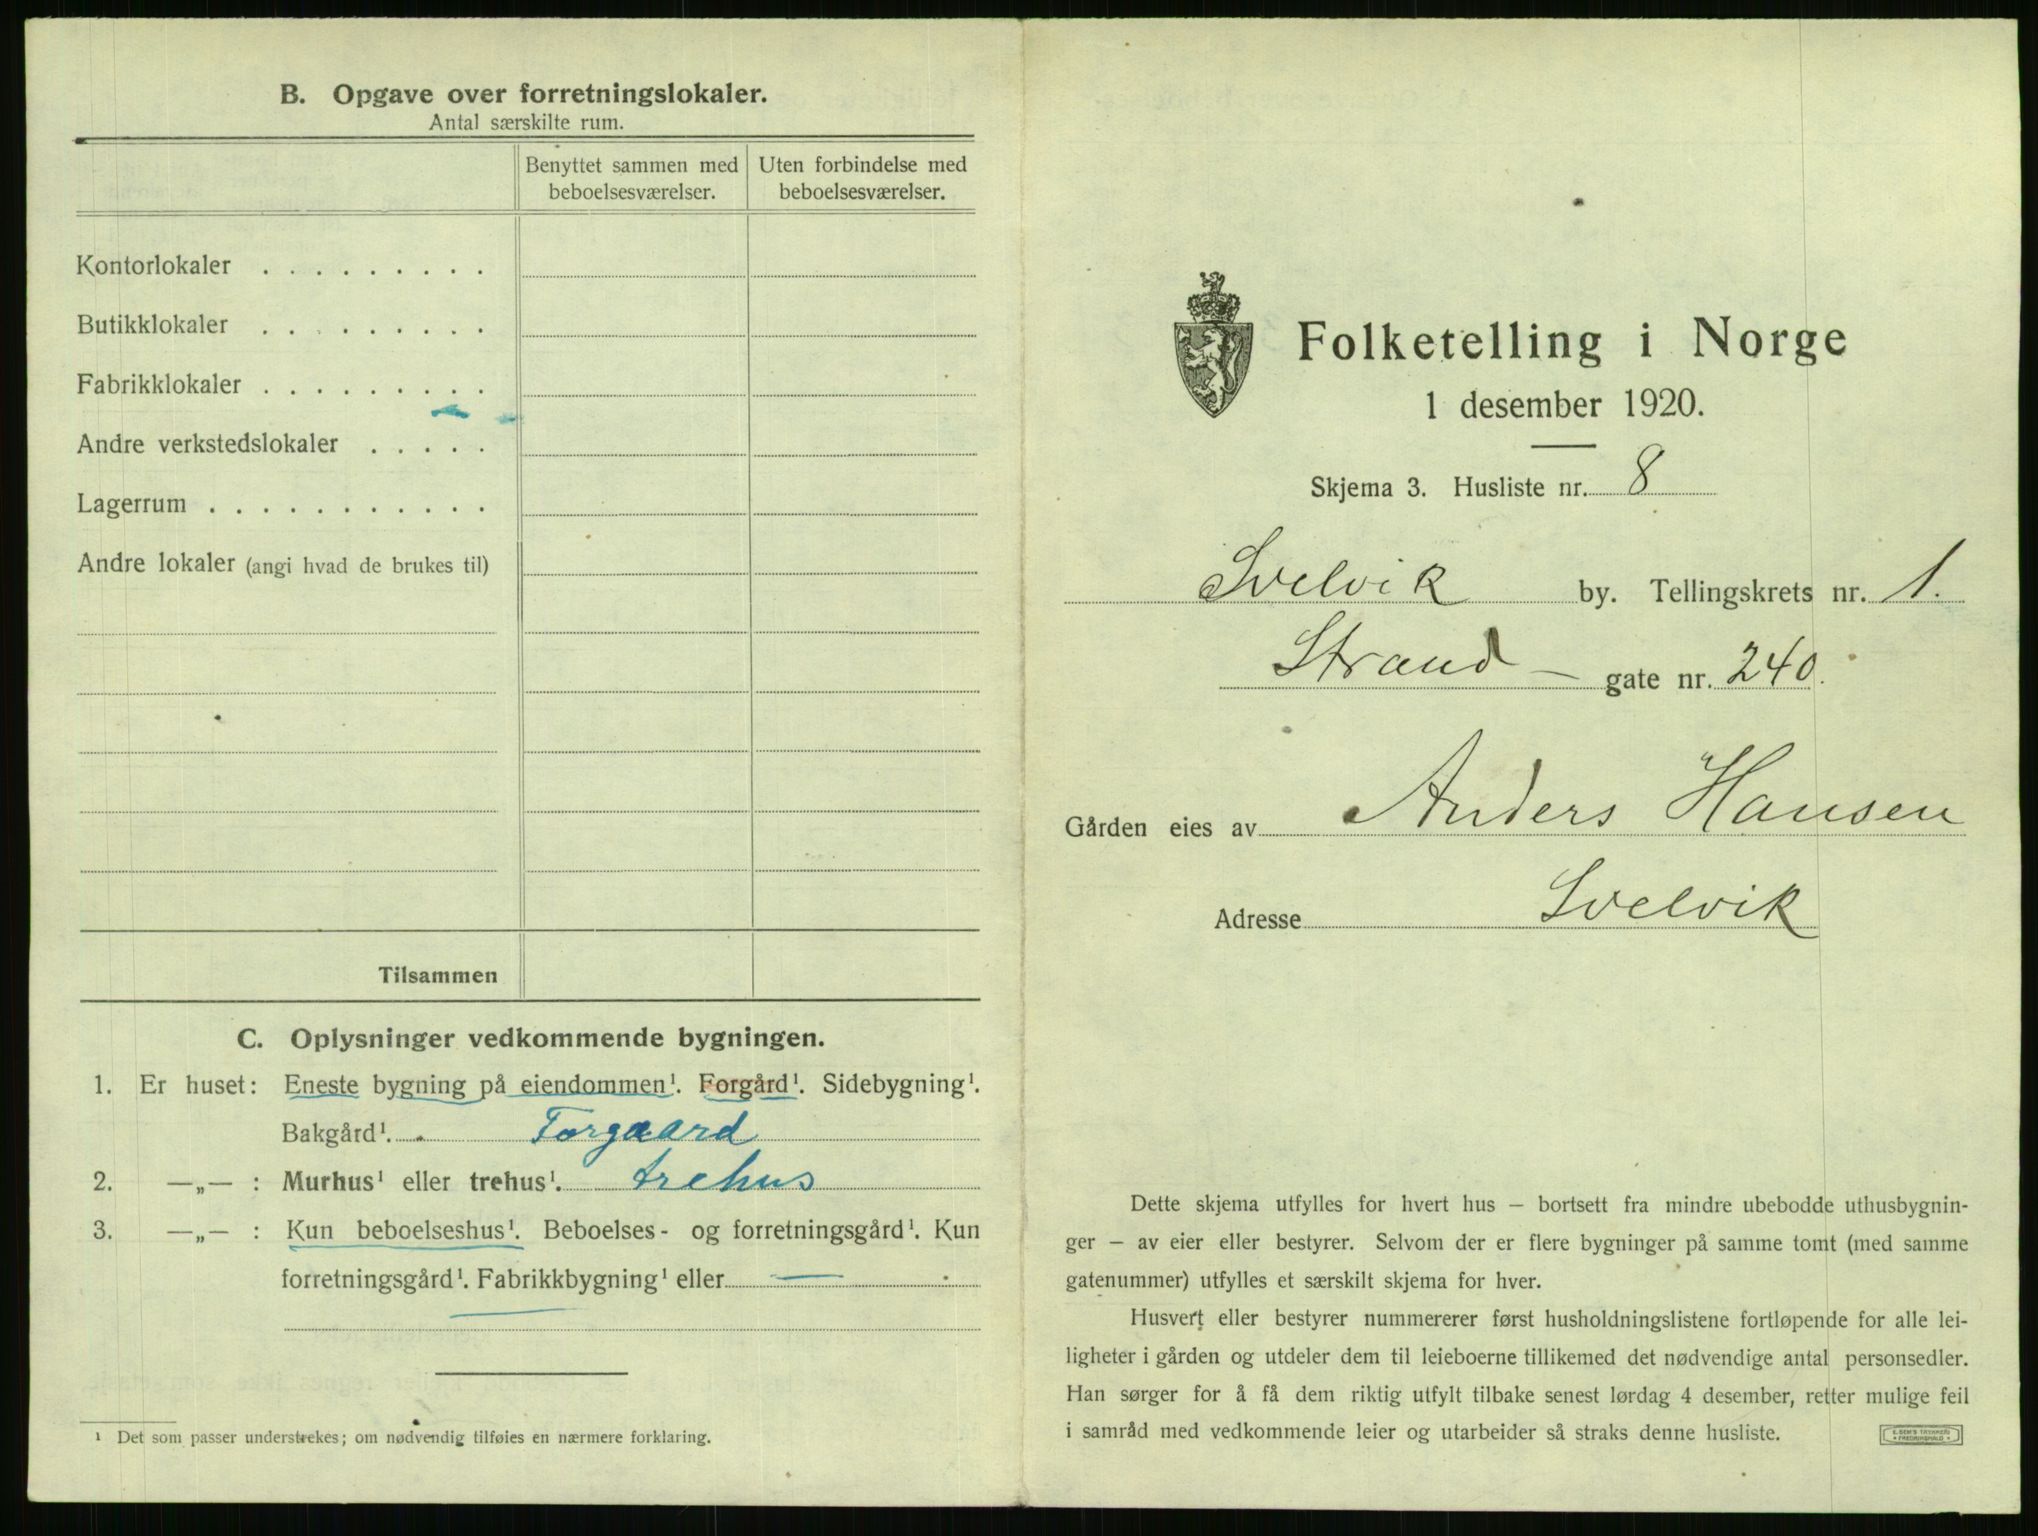 B. Opgave over forretningslokaler.
Antal særskilte rum.
Benyttet sammen med beboelsesværelser.
Uten forbindelse med beboelsesværelser.
Kontorlokaler . . . . . . . . .
Butikklokaler . . . . . . . . .
Fabrikklokaler . . . . . . . . .
Andre verkstedslokaler . . . . .
Lagerrum . . . . . . . . . . .
Andre lokaler (angi hvad de brukes til)
Tilsammen
C. Oplysninger vedkommende bygningen.
1. Er huset: Eneste bygning på eiendommen¹. Forgård¹. Sidebygning¹.
Bakgård¹. Forgaard
2. —„— : Murhus¹ eller trehus¹. trehus
3. —„— : Kun beboelseshus¹. Beboelses- og forretningsgård¹. Kun
forretningsgård¹. Fabrikkbygning¹ eller —
¹ Det som passer understrekes; om nødvendig tilføies en nærmere forklaring.
Folketelling i Norge
1 desember 1920.
Skjema 3. Husliste nr. 8
Svelvik by. Tellingskrets nr. 1.
Strand- gate nr. 240.
Gården eies av Anders Hansen
Adresse Svelvik
Dette skjema utfylles for hvert hus – bortsett fra mindre ubebodde uthusbygnin-
ger – av eier eller bestyrer. Selvom der er flere bygninger på samme tomt (med samme
gatenummer) utfylles et særskilt skjema for hver.
Husvert eller bestyrer nummererer først husholdningslistene fortløpende for alle lei-
ligheter i gården og utdeler dem til leieboerne tillikemed det nødvendige antal personsedler.
Han sørger for å få dem riktig utfylt tilbake senest lørdag 4 desember, retter mulige feil
i samråd med vedkommende leier og utarbeider så straks denne husliste.
E. SEM'S TRYKKERI
FREDRIKSHALD